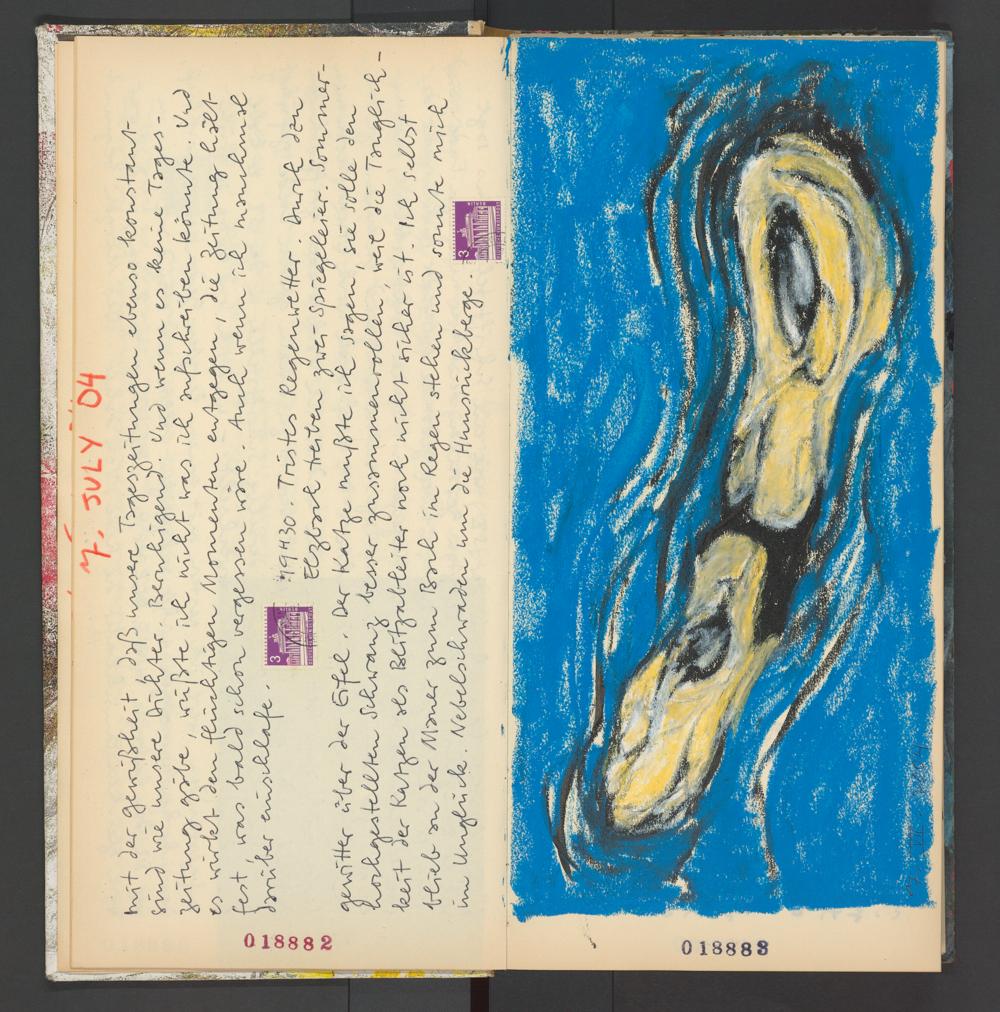 7. JULY 04
mit der gewißheit daß unsere Tageszeitungen ebenso konstant
sind wie unsere Dichter. Beruhigend. Und wenn es keine Tages-
zeitung gäbe, wüßte ich nicht was ich aufschreiben könnte. Und
es wirkt den flüchtigen Momenten entgegen, die Zeitung hält
fest, was bald schon vergessen wäre. Auch wenn ich manchmal
darüber einschlafe.
19H30. Tristes Regenwetter. Durch den
Elzbach treiben zwei Spiegeleier. Sommer-
gewitter über der Eifel. Der Katze mußte ich sagen, sie solle den
hochgestellten Schwanz besser zusammenrollen, weil die Tauglich-
keit der Katzen als Blitzableiter noch nicht sicher ist. Ich selbst
blieb an der Mauer zum Bach im Regen stehen und sonnte mich
im Unglück. Nebelschwaden um die Hunsrückberge
3
BERLIN
3
BERLIN
018882
018883